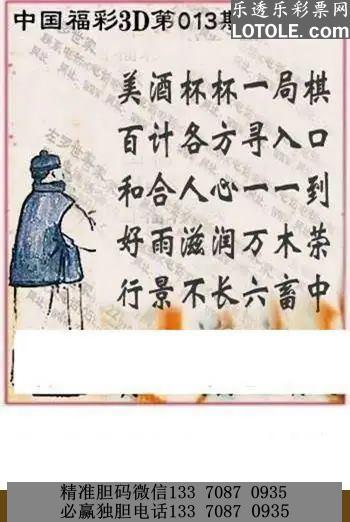 中国福彩3D第013期
乐透乐彩票网
LOTOLE.COM
美酒杯杯一局棋
百计各方寻入口
和合人心一一到
好雨滋润万木荣
行景不长六畜中
精准胆码微信133 7087 0935
必赢独胆电话133 7087 0935